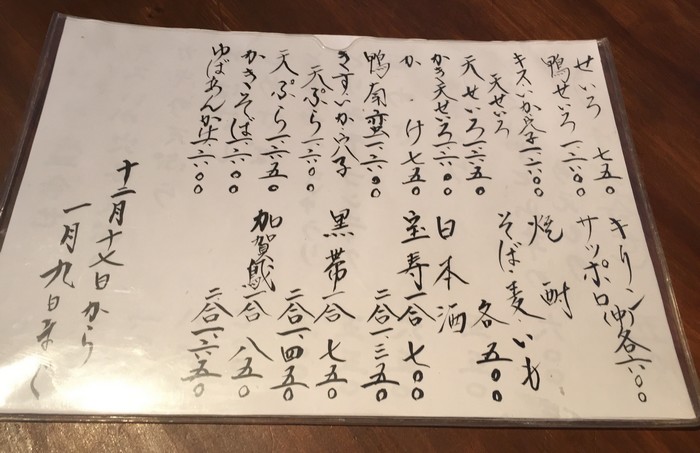 せいろ 七五〇
鴨せいろ 一、六〇〇
キス・いか・穴子
天せいろ 一、六〇〇
天せいろ 一、六五〇
かき天せいろ 一、六〇〇
か け 七五〇
鴨南蛮 一、六〇〇
きす・いか・穴子
天ぷら 一、六〇〇
天ぷら 一、六五〇
かきそば 一、六〇〇
ゆばあんかけ 一、六〇〇
キリン
サッポロ(中)各六〇〇
焼 酎
そば・麦・いも
各 五〇〇
日本酒
宝寿 一合 七〇〇
二合 一、三五〇
黒帯 一合 七五〇
二合 一、四五〇
加賀鳶 一合 八五〇
二合 一、六五〇
十二月十七日から
一月九日まで